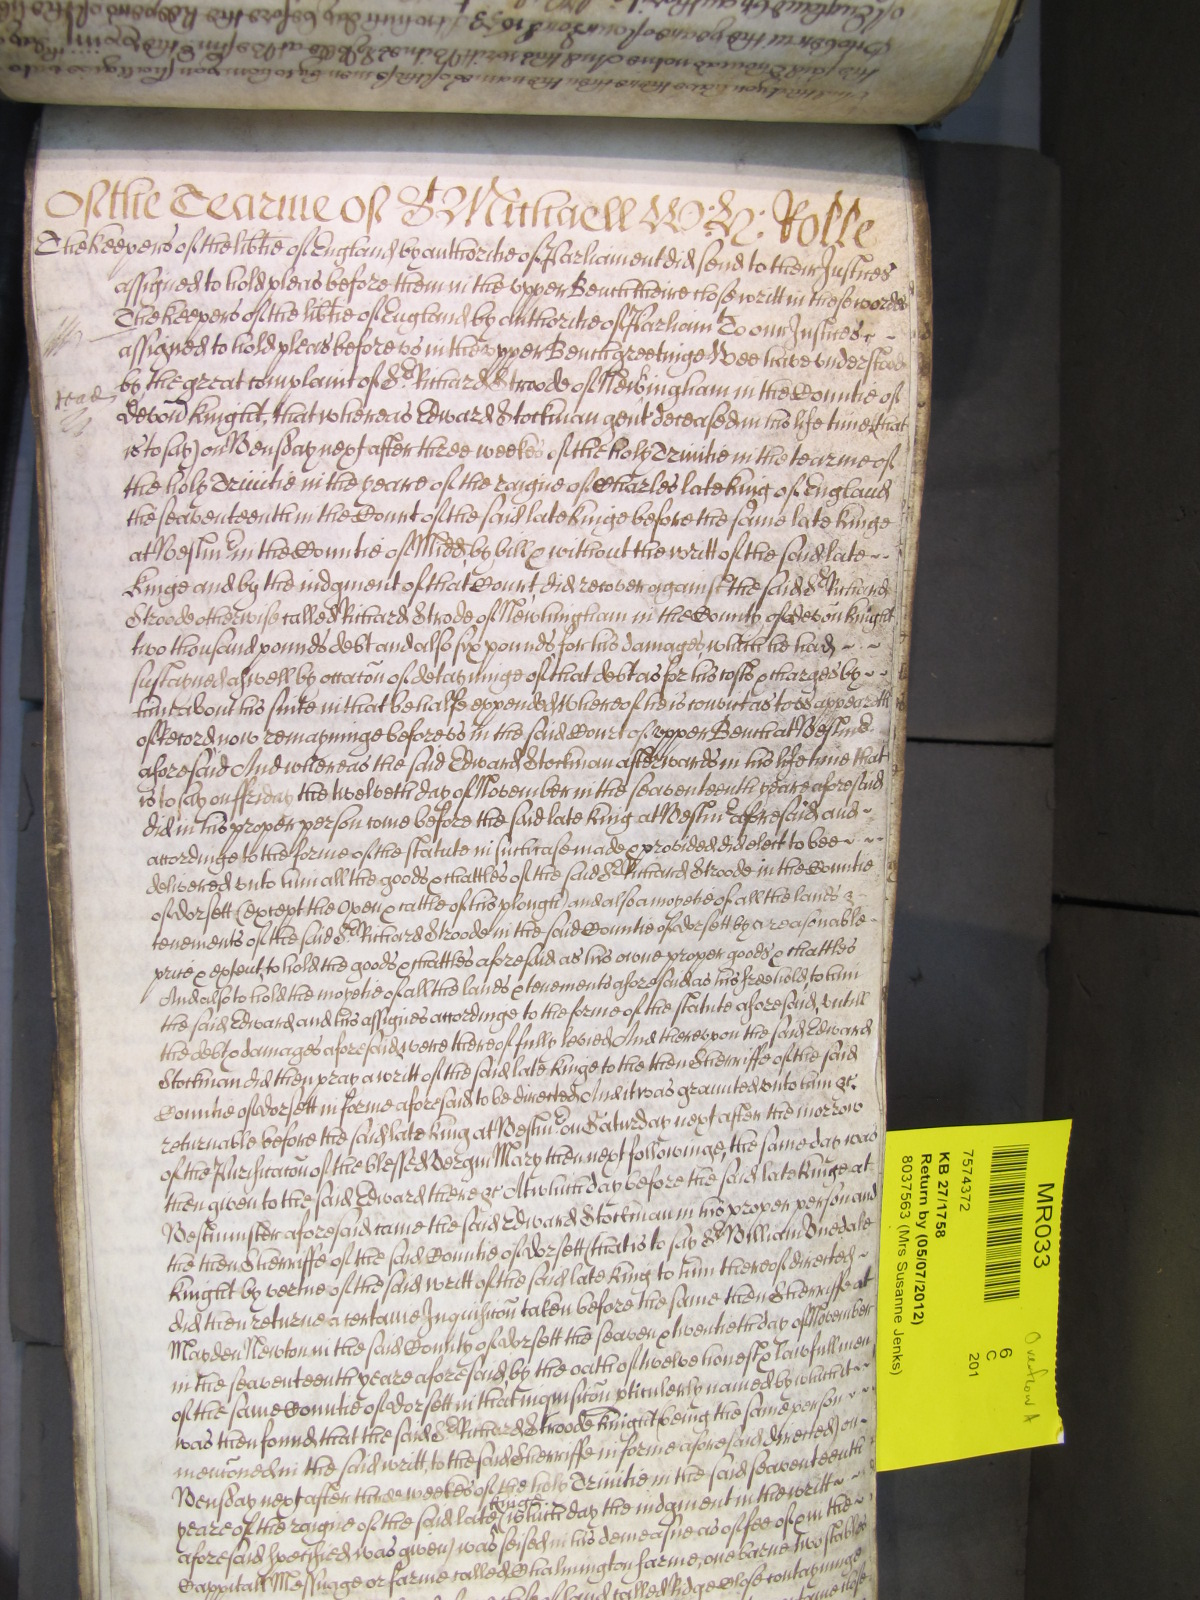 Of the Tearme of St Michaell W: N: Rolle
The keepers of the libtie of England by authoritie of Parliament did send to their Justices
assigned to hold pleas before them in the vpper Bench theire close writt in these wordes
The keepers of the libtie of England by authoritie of Parliam To our Justices
assigned to hold pleas before vs in the vpper Bench greetinge Wee have vnderstood
by the great complaint of Sr Richard Stroode of Newingham in the Countie of
read
Devon knight, that whereas Edward Stockman gent deceased in his life time (that
is to say) on Wensday next after three weekes of the holy Trinitie in the tearme of
the holy Trinitie in the yeare of the raigne of Charles late king of England
the seaventeenth in the Court of the said late kinge before the same late kinge
at Westm in the Countie of Midd by bill & without the writt of the said late
kinge and by the iudgment of that Court did recover against the said Sr Richard
Stroode otherwise called Richard Strode of Newingham in the County of Devon knight
two thousand pounds debt and also six pounds for his damages which he had
sustayned aswell by occacon of detayninge of that debt as for his costs & charges by
him about his suite in that behalfe expended Whereof he is convict as to vs appeareth
of record now remayninge before vs in the said Court of vpper Bench at Westmr
aforesaid And whereas the said Edward Stockman afterwards in his life time that
is to say on ffriday the twelveth day of November in the seaventeenth yeare aforesaid
did in his proper person come before the said late king at Westmr aforesaid and
accordinge to the forme of the statute in such case made & provided did elect to bee
delivered vnto him all the goods & chattles of the said Sr Richard Stroode in the Countie
of Dorsett (except the Oxen & cattle of his plough) and also a moyetie of all the lands &
tenements of the said Sr Richard Stroode in the said Countie of Dorsett by a reasonable
price & extent, to hold the goods & chattles aforesaid as his owne proper goods & chattles
And also to hold the moyetie of all the lands & tenements aforesaid as his freehold, to him
the said Edward and his assignes accordinge to the forme of the statute aforesaid, vntill
the debt & damages aforesaid were thereof fully levied And therevpon the said Edward
Stockman did then pray a writt of the said late kinge to the then Sherriffe of the said
Countie of Dorsett in forme aforesaid to be directed, And it was graunted vnto him &c
returnable before the said late king at Westmr on Saturday next after the morrow
of the Purificacon of the blessed Vergin Mary then next followinge, the same day was
then given to the said Edward there &c At which day before the said late kinge at
Westminster aforesaid came the said Edward Stockman in his proper person and
the then Sherriffe of the said Countie of Dorsett (that is to say Sr William Vnedale
knight by vertue of the said writt of the said late king to him thereof directed
did then returne a certaine Inquisicon taken before the same then Sherriffe at
Mayden Newton in the said County of Dorsett the seaven & twentieth day of November
in the seaventeenth yeare aforesaid, by the oath of twelve honest & lawfull men
of the same Countie of Dorsett in that inquisicon pticulerly named by which it
was then found that the said Sr Richard Stroode knight (being the same person
mencioned in the said writt, to the said Sherriffe in forme aforesaid directed) on
Wensday next after three weekes of the holy Trinitie in the said seaventeenth
yeare of the raigne of the said late kinge (which day the iudgment in the writt
aforesaid specified was given) was seised in his demeasne as of fee of & in the
Cappitall Messuage or farme called Chalmington farme, one barne two stables
of land called Ridge Close contayninge
MR033
7574372
KB 27/1758
Return by (05/07/2012)
8037563 (Mrs Susanne Jenks)
6
C
201
Overflow A